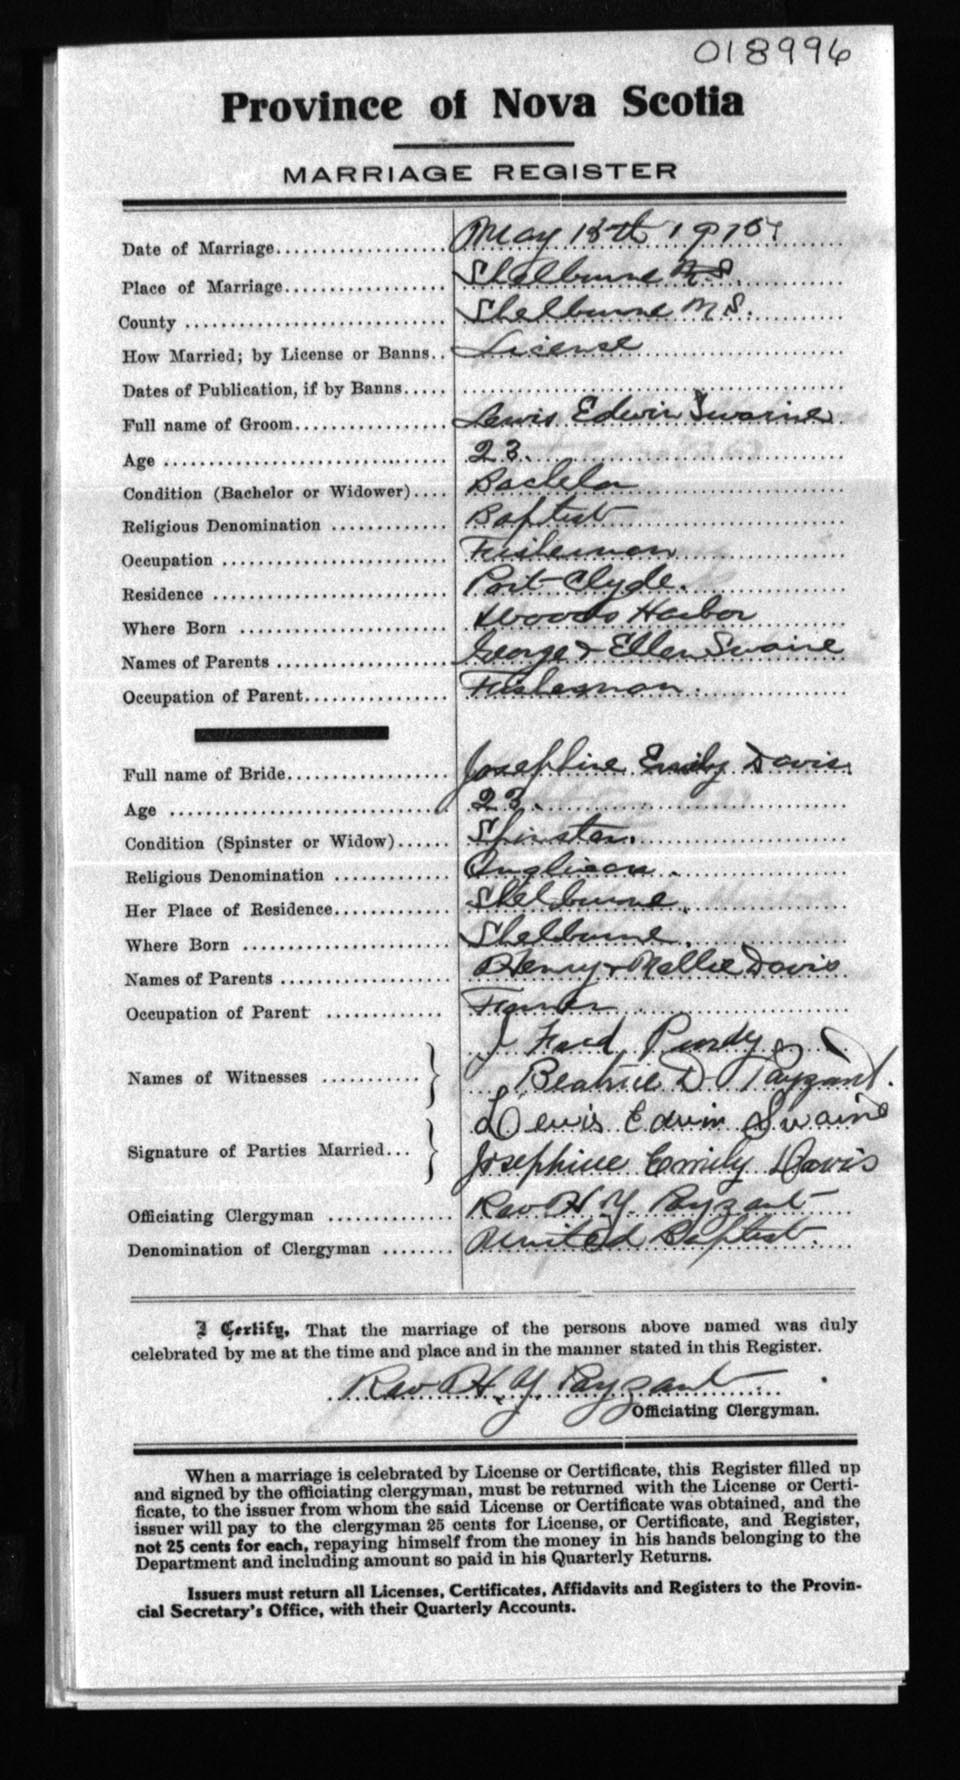 018996
Province of Nova Scotia
MARRIAGE REGISTER
Date of Marriage.................... May 13th 1915.
Place of Marriage.................. Shelburne N.S.
County ............................. Shelburne N S.
How Married; by License or Banns.. License
Dates of Publication, if by Banns.....
Full name of Groom................. Lewis Edwin Swaine
Age ................................ 23.
Condition (Bachelor or Widower).... Bachelor
Religious Denomination ............. Baptist
Occupation ......................... Fisherman
Residence .......................... Port Clyde.
Where Born ....................... Woods Harbor
Names of Parents ................... George & Ellen Swaine
Occupation of Parent................ Fisherman.
Full name of Bride.................. Josephine Emily Davis.
Age ................................ 23.
Condition (Spinster or Widow)...... Spinster.
Religious Denomination ............. Anglican.
Her Place of Residence............. Shelburne.
Where Born ....................... Shelburne.
Names of Parents ................... Henry & Nellie Davis
Occupation of Parent ............. Farmer
J Ford Purdy
Names of Witnesses ........... Beatrice D Payzant.
Lewis Edwin Swaine
Signature of Parties Married... Josephine Emily Davis
Officiating Clergyman .............. Rev H. Y. Payzant
Denomination of Clergyman ........ United Baptist.
I Certify, That the marriage of the persons above named was duly
celebrated by me at the time and place and in the manner stated in this Register.
Rev H. Y. Payzant
Officiating Clergyman.
When a marriage is celebrated by License or Certificate, this Register filled up
and signed by the officiating clergyman, must be returned with the License or Certi-
ficate, to the issuer from whom the said License or Certificate was obtained, and the
issuer will pay to the clergyman 25 cents for License, or Certificate, and Register,
not 25 cents for each, repaying himself from the money in his hands belonging to the
Department and including amount so paid in his Quarterly Returns.
Issuers must return all Licenses, Certificates, Affidavits and Registers to the Provin-
cial Secretary's Office, with their Quarterly Accounts.